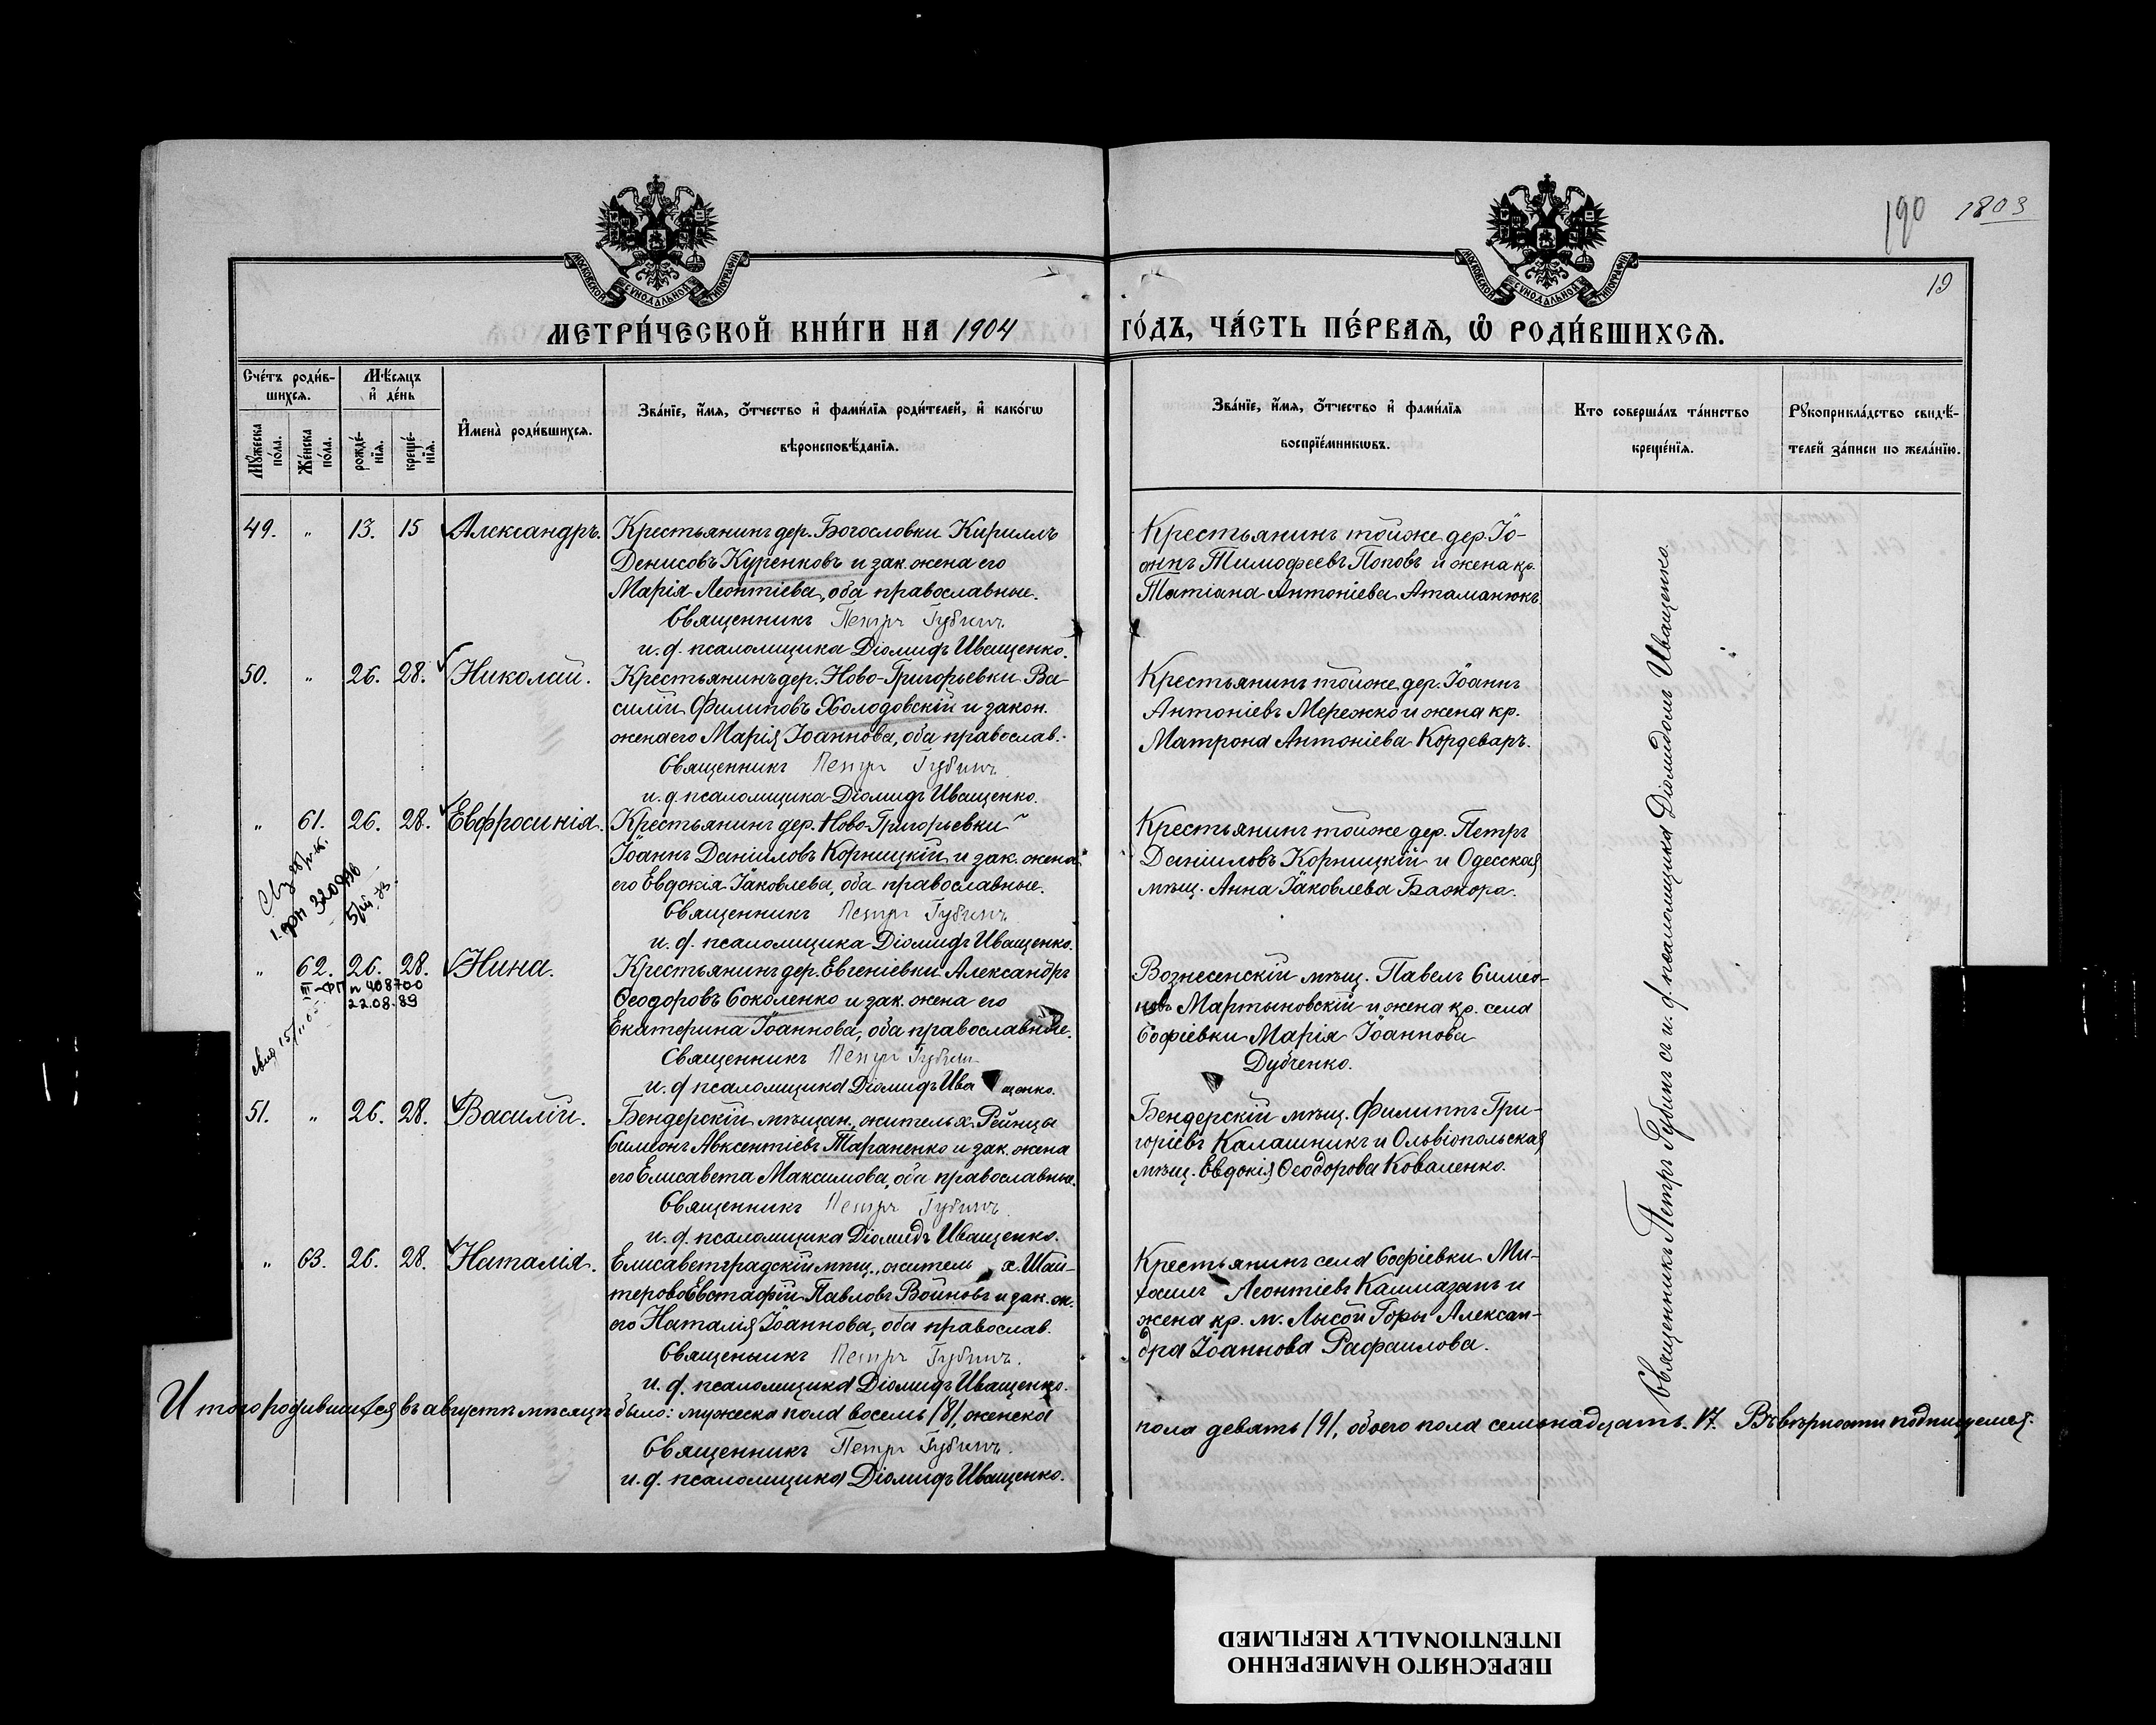 190 1803
19
МОСКОВСКОЙ СѴНОДАЛЬНОЙ ТИПОГРАФІИ
МОСКОВСКОЙ СѴНОДАЛЬНОЙ ТИПОГРАФІИ
МЕТРИ́ЧЕСКОЙ КНИ́ГИ НА 1904 ГО́ДЪ, ЧА́СТЬ ПЕ́РВАѦ, Ѡ҆ РОДИ́ВШИХСѦ.
Сче́тъ роди́в-
шихсѧ.
Мꙋ́жеска по́ла.
Же́нска по́ла.
Мѣ́сѧцъ и҆ де́нь
рожде́-нїѧ.
креще́-нїѧ.
И҆мена̀ роди́вшихсѧ.
Зва́нїе, и҆́мѧ, ѻ҆́тчество и҆ фами́лїѧ роди́телей, и҆ како́гѡ
вѣроисповѣ́данїѧ.
Зва́нїе, и҆́мѧ, ѻ҆́тчество и҆ фами́лїѧ
воспрїе́мникѡвъ.
Кто соверша́лъ та́инство
креще́нїѧ.
Рꙋкоприкла́дство свидѣ́-
телей за́писи по жела́нїю.
49. " 13. 15 Александръ. Крестьянинъ дер. Богословки Кириллъ
Денисовъ Куренковъ и зак. жена его
Марія Леонтіева, оба православные.
Священникъ Петръ Губинъ
и. д. псаломщика Діомидъ Иващенко.
Крестьянинъ тойже дер. Іо-
аннъ Тимофеевъ Поповъ и жена кр.
Татіана Антоніева Атаманюкъ.
50. " 26. 28. Николай. Крестьянинъ дер. Ново-Григорьевки Ва-
силій Филиповъ Холодовскій и закон.
жена его Марія Іоаннова, оба православ.
Священникъ Петръ Губинъ
и. д. псаломщика Діомидъ Иващенко.
Крестьянинъ тойже дер. Іоаннъ
Антоніевъ Мережко и жена кр.
Матрона Антоніева Кордеваръ.
" 61. 26. 28. Евфросинія. Крестьянинъ дер. Ново-Григорьевки
Іоаннъ Даніиловъ Корницкій и зак. жена
его Евдокія Іаковлева, оба православные.
Священникъ Петръ Губинъ
и. д. псаломщика Діомидъ Иващенко.
Крестьянинъ тойже дер. Петръ
Даніиловъ Корницкій и Одесская
мѣщ. Анна Іаковлева Бажора.
" 62. 26. 28. Нина. Крестьянинъ дер. Евгеніевки Александръ
III-ФП n 408700
22.08.89
Ѳеодоровъ Соколенко и зак. жена его
Екатерина Іоаннова, оба православные.
Священникъ Петръ Губинъ
и. д. псаломщика Діомидъ Иващенко.
Вознесенскій мѣщ. Павелъ Симео-
новъ Мартыновскій и жена кр. села
Софіевки Марія Іоаннова
Дубченко.
51. " 26. 28. Василій. Бендерскій мѣщан., житель х. Рейнцы
Симеонъ Авксентіевъ Тараненко и зак. жена
его Елисавета Максимова, оба православные.
Священникъ Петръ Губинъ
и. д. псаломщика Діомидъ Иващенко.
Бендерскій мѣщ. Филиппъ Гри-
горіевъ Калашникъ и Ольвіопольская
мѣщ. Евдокія Ѳеодорова Коваленко.
" 63. 26. 28. Наталія. Елисаветградскій мѣщ., житель х. Шай-
терово Евстафій Павловъ Войновъ и зак. ж.
его Наталія Іоаннова, оба православ.
Священникъ Петръ Губинъ.
и. д. псаломщика Діомидъ Иващенко.
Крестьянинъ села Софіевки Ми-
хаилъ Леонтіевъ Каймазанъ и
жена кр. м. Лысой Горы Алексан-
дра Іоаннова Рафаилова.
Священникъ Петръ Губинъ съ и. д. псаломщика Діомидомъ Иващенко.
Итого родившихся въ августѣ мѣсяцѣ было: мужеска пола восемь /8/, женска пола девять /9/, обоего пола семьнадцать. 17. Въ вѣрности подпишемся:
Священникъ Петръ Губинъ.
и. д. псаломщика Діомидъ Иващенко.
ПЕРЕСНЯТО НАМЕРЕННО
INTENTIONALLY REFILMED